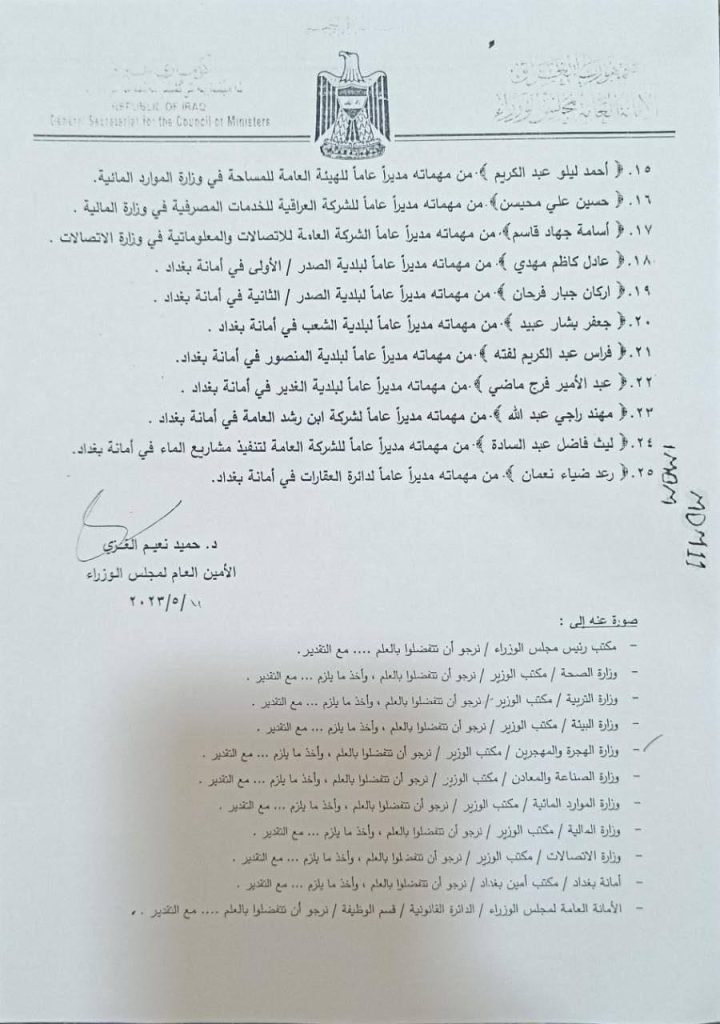 جمهورية العراق
الأمانة العامة لمجلس الوزراء
REPUBLIC OF IRAQ
General Secretariat for the Council of Ministers
١٥. ﴿ أحمد ليلو عبد الكريم ﴾ من مهماته مديراً عاماً للهيئة العامة للمساحة في وزارة الموارد المائية.
١٦. ﴿ حسين علي محيسن﴾ من مهماته مديراً عاماً للشركة العراقية للخدمات المصرفية في وزارة المالية .
١٧. ﴿ أسامة جهاد قاسم﴾ من مهماته مديراً عاماً الشركة العامة للاتصالات والمعلوماتية في وزارة الاتصالات .
١٨. ﴿ عادل كاظم مهدي ﴾ من مهماته مديراً عاماً لبلدية الصدر / الأولى في أمانة بغداد .
١٩. ﴿ اركان جبار فرحان ﴾ من مهماته مديراً عاماً لبلدية الصدر / الثانية في أمانة بغداد .
٢٠. ﴿ جعفر بشار عبيد ﴾ من مهماته مديراً عاماً لبلدية الشعب في أمانة بغداد .
٢١. ﴿ فراس عبد الكريم لفته ﴾ من مهماته مديراً عاماً لبلدية المنصور في أمانة بغداد.
٢٢. ﴿ عبد الأمير فرج ماضي ﴾ من مهماته مديراً عاماً لبلدية الغدير في أمانة بغداد .
٢٣. ﴿ مهند راجي عبد الله ﴾ من مهماته مديراً عاماً لشركة ابن رشد العامة في أمانة بغداد .
٢٤. ﴿ ليث فاضل عبد السادة ﴾ من مهماته مديراً عاماً للشركة العامة لتنفيذ مشاريع الماء في أمانة بغداد.
٢٥. ﴿ رعد ضياء نعمان ﴾ من مهماته مديراً عاماً لدائرة العقارات في أمانة بغداد.
د. حميد نعيم الغزي
الأمين العام لمجلس الوزراء
٢٠٢٣/٥/
صورة عنه إلى :
- مكتب رئيس مجلس الوزراء / نرجو أن تتفضلوا بالعلم .... مع التقدير .
- وزارة الصحة / مكتب الوزير / نرجو أن تتفضلوا بالعلم ، وأخذ ما يلزم ... مع التقدير .
- وزارة التربية / مكتب الوزير / نرجو أن تتفضلوا بالعلم ، وأخذ ما يلزم ... مع التقدير .
- وزارة البيئة / مكتب الوزير / نرجو أن تتفضلوا بالعلم ، وأخذ ما يلزم ... مع التقدير .
- وزارة الهجرة والمهجرين / مكتب الوزير / نرجو أن تتفضلوا بالعلم ، وأخذ ما يلزم ... مع التقدير .
- وزارة الصناعة والمعادن / مكتب الوزير / نرجو أن تتفضلوا بالعلم ، وأخذ ما يلزم ... مع التقدير .
- وزارة الموارد المائية / مكتب الوزير / نرجو أن تتفضلوا بالعلم ، وأخذ ما يلزم ... مع التقدير .
- وزارة المالية / مكتب الوزير / نرجو أن تتفضلوا بالعلم ، وأخذ ما يلزم ... مع التقدير .
- وزارة الاتصالات / مكتب الوزير / نرجو أن تتفضلوا بالعلم ، وأخذ ما يلزم ... مع التقدير .
- أمانة بغداد / مكتب أمين بغداد / نرجو أن تتفضلوا بالعلم ، وأخذ ما يلزم ... مع التقدير .
- الأمانة العامة لمجلس الوزراء / الدائرة القانونية / قسم الوظيفة / نرجو أن تتفضلوا بالعلم .... مع التقدير .